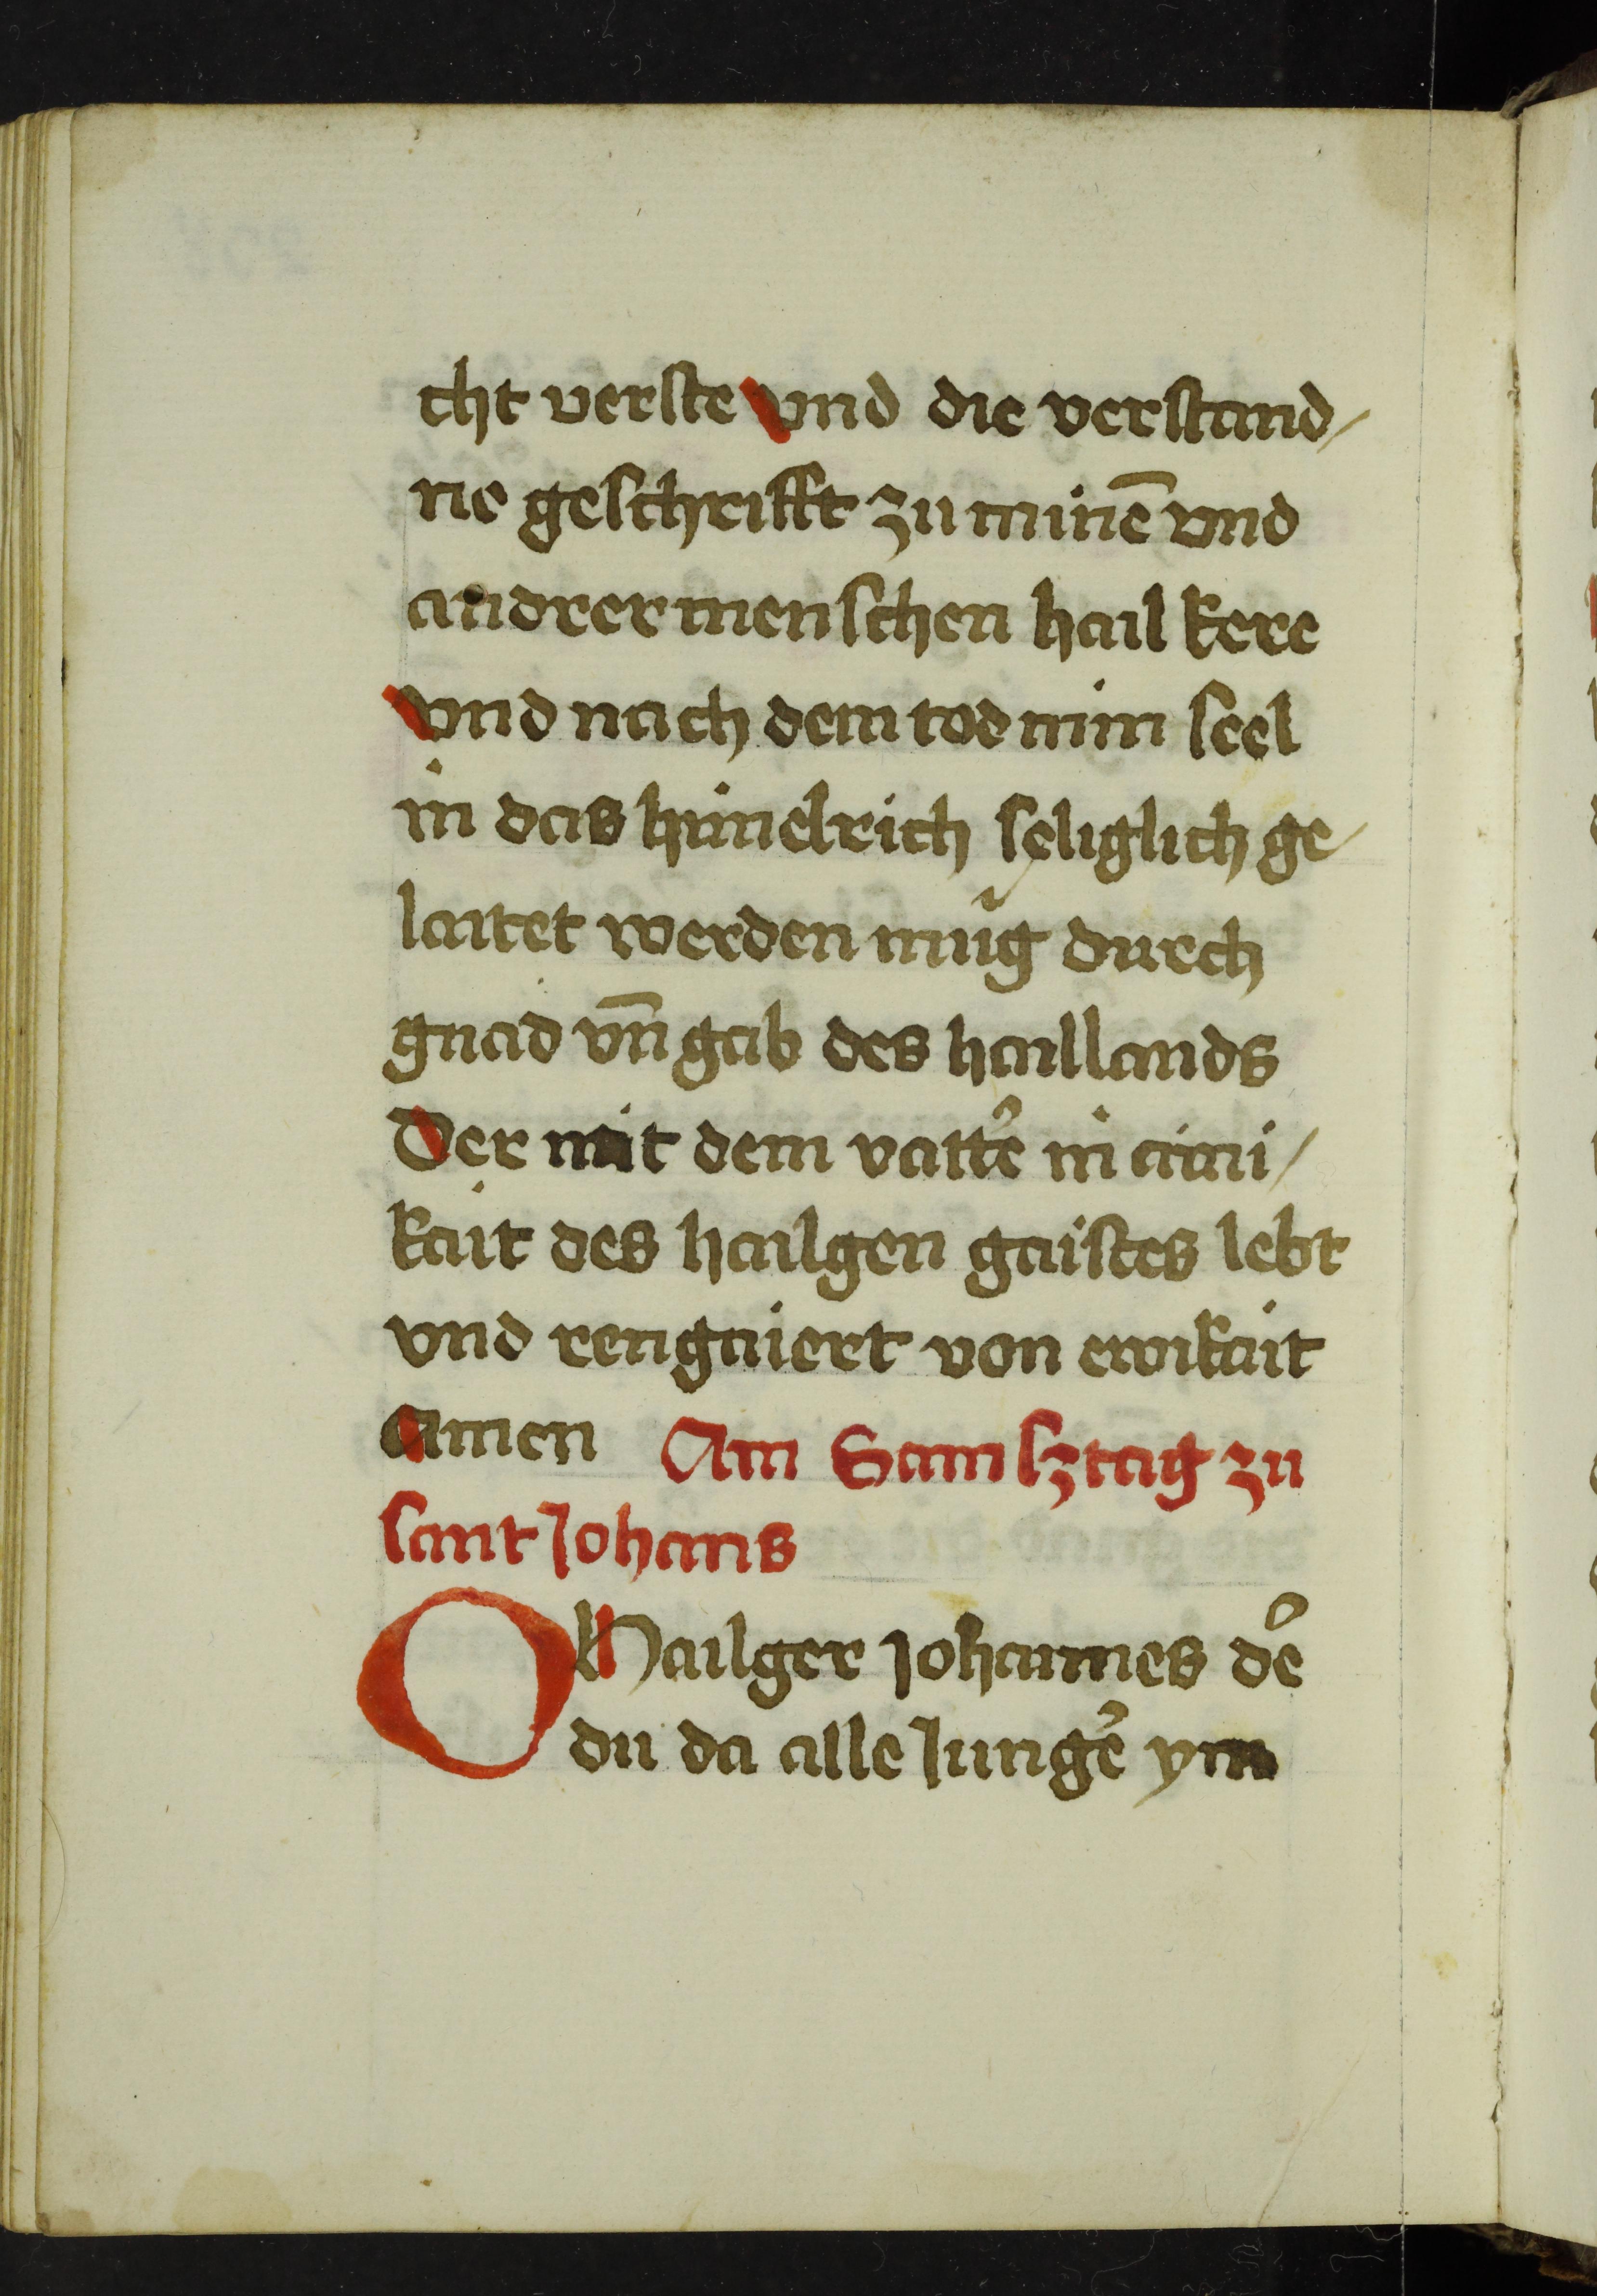 cht verste vnd die verstand/
ne geschrifft zu minē vnd
andrer menschen hail kere
vnd nach dem tod min seel
in das himelrich seliglich ge/
laitet werden mug durch
gnad vn̄ gab des haillands
Der mit dem vatt̾e in aini/
kait des hailgen gaistes lebt
vnd rengniert von ewikait
Amen Am Samsztag zu
sant Johans
O Hailger johannes d̾e
du da alle Jung̾e ym